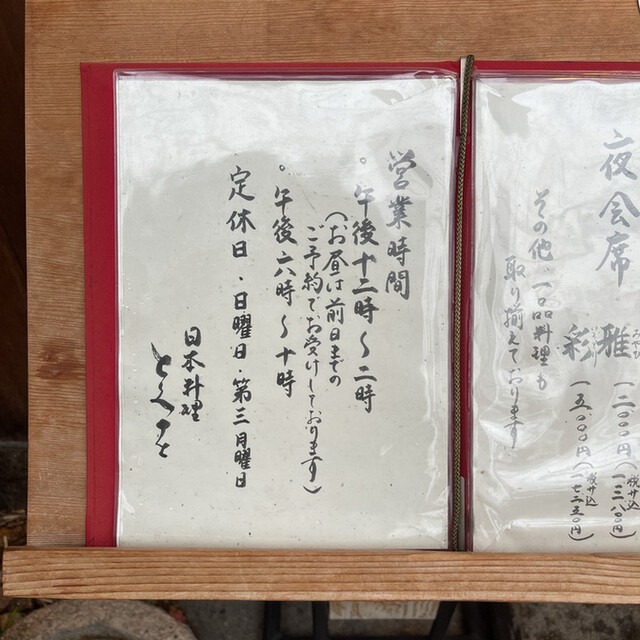 夜会席 雅 一二〇〇〇円(税サ込
彩 一五〇〇〇円(税サ込 一七二五〇円)
その他、一品料理も
取り揃えております
営業時間
。午後十二時～二時
(お昼は前日までの
ご予約でお受けしております)
。午後六時～十時
定休日・日曜日・第三月曜日
日本料理